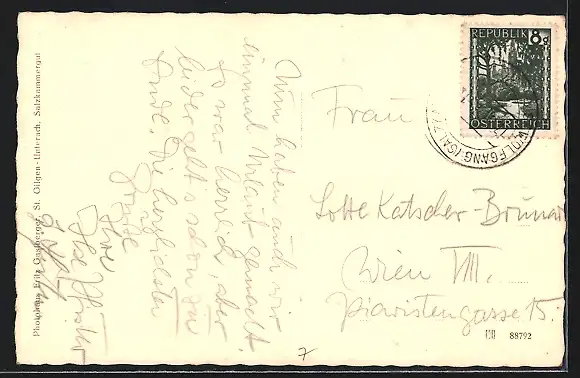 Nun haben auch wir
einmal Urlaub gemacht.
Es war herrlich, aber
leider geht's schon zu
Ende. Die herzlichsten
Grüße
Ihre
Ilse
Photohaus Fritz Gastberger, St. Gilgen-Unterach, Salzkammergut
REPUBLIK 8g
ÖSTERREICH
WOLFGANG (SALZ
Frau
Lotte Katscher-Brunar
Wien VIII.
Piaristengasse 15.
88792
7